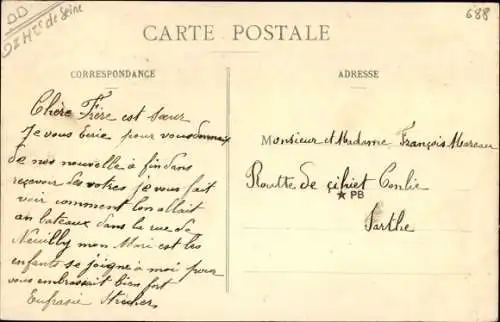 DD
92 Hts de Seine
688
CARTE POSTALE
CORRESPONDANCE
ADRESSE
Chère Frère est sœur
Je vous écrie pour vous donner
de nos nouvelle à fin dans
reçevoir des votres je vous fait
voir comment l'on allait
an bateaux dans la rue de
Neuilly mon Mari est les
enfants se joigne à moi pour
vous embrassait bien fort
Eufrasie
Monsieur et Madame François Moreau
Routte de Conlie
★ PB
Sarthe